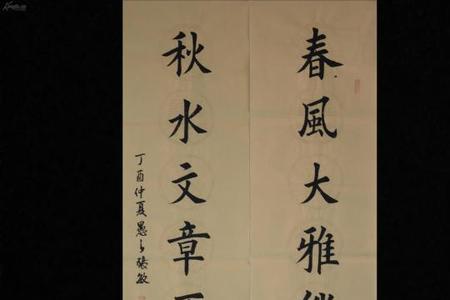 春風大雅
秋水文章
丁酉仲夏 張敏